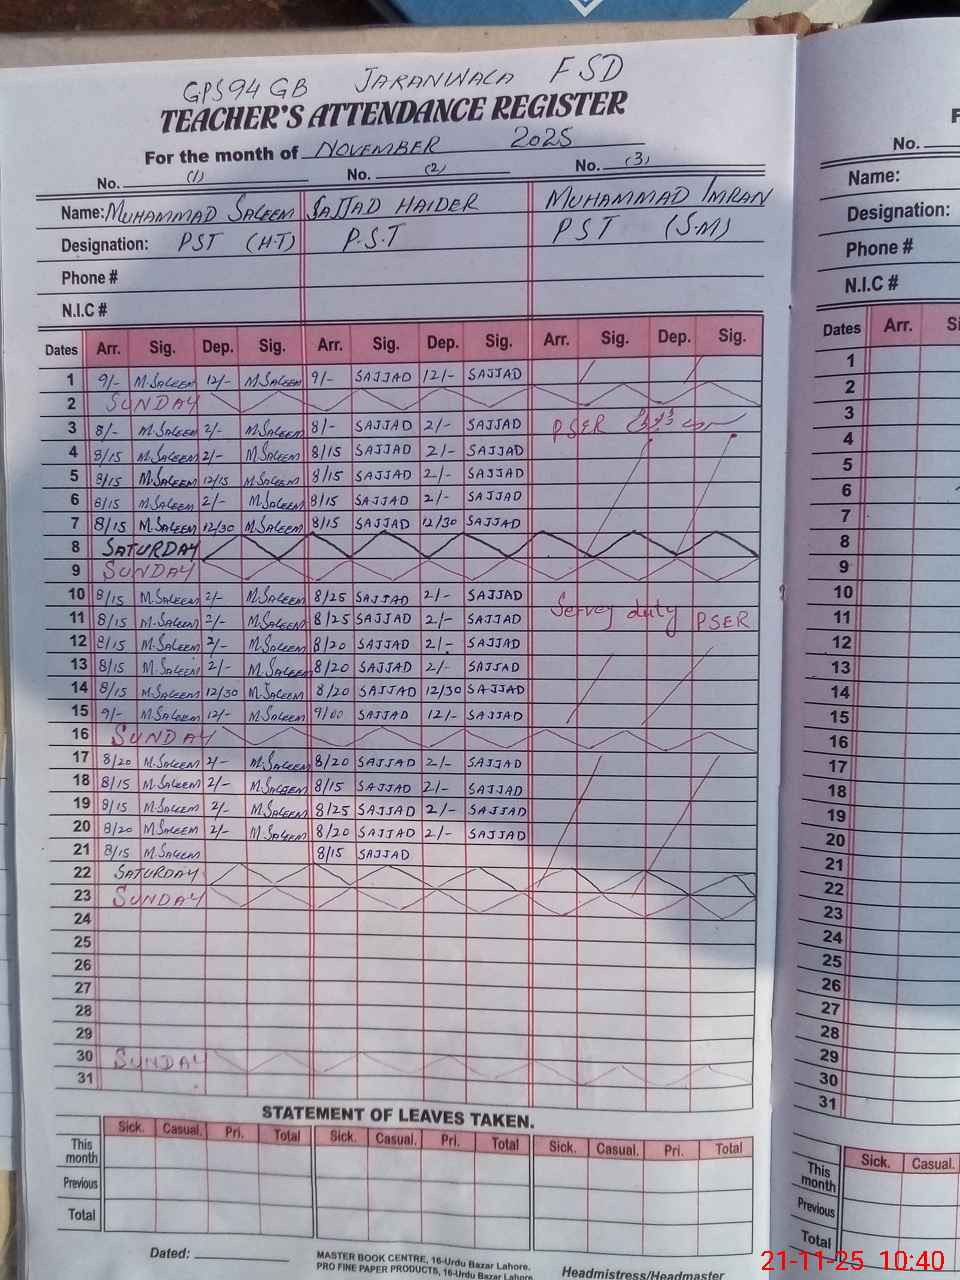 GPS 94 GB JARANWALA FSD
TEACHER'S ATTENDANCE REGISTER
For the month of NOVEMBER 2025
No. (1) No. (2) No. (3)
Name: MUHAMMAD SALEEM SAJJAD HAIDER MUHAMMAD IMRAN
Designation: PST (H.T) P.S.T PST (S.M)
Phone #
N.I.C #
Dates Arr. Sig. Dep. Sig. Arr. Sig. Dep. Sig. Arr. Sig. Dep. Sig.
1 9/- M.SALEEM 12/- M.SALEEM 9/- SAJJAD 12/- SAJJAD
2 SUNDAY
3 8/- M.SALEEM 2/- M.SALEEM 8/- SAJJAD 2/- SAJJAD PSER
4 8/15 M.SALEEM 2/- M.SALEEM 8/15 SAJJAD 2/- SAJJAD
5 8/15 M.SALEEM 12/15 M.SALEEM 8/15 SAJJAD 2/- SAJJAD
6 8/15 M.SALEEM 2/- M.SALEEM 8/15 SAJJAD 2/- SAJJAD
7 8/15 M.SALEEM 12/30 M.SALEEM 8/15 SAJJAD 12/30 SAJJAD
8 SATURDAY
9 SUNDAY
10 8/15 M.SALEEM 2/- M.SALEEM 8/25 SAJJAD 2/- SAJJAD
11 8/15 M.SALEEM 2/- M.SALEEM 8/25 SAJJAD 2/- SAJJAD Servey duty PSER
12 8/15 M.SALEEM 2/- M.SALEEM 8/20 SAJJAD 2/- SAJJAD
13 8/15 M.SALEEM 2/- M.SALEEM 8/20 SAJJAD 2/- SAJJAD
14 8/15 M.SALEEM 12/30 M.SALEEM 8/20 SAJJAD 12/30 SAJJAD
15 9/- M.SALEEM 12/- M.SALEEM 9/00 SAJJAD 12/- SAJJAD
16 SUNDAY
17 8/20 M.SALEEM 2/- M.SALEEM 8/20 SAJJAD 2/- SAJJAD
18 8/15 M.SALEEM 2/- M.SALEEM 8/15 SAJJAD 2/- SAJJAD
19 8/15 M.SALEEM 2/- M.SALEEM 8/25 SAJJAD 2/- SAJJAD
20 8/20 M.SALEEM 2/- M.SALEEM 8/20 SAJJAD 2/- SAJJAD
21 8/15 M.SALEEM 8/15 SAJJAD
22 SATURDAY
23 SUNDAY
24
25
26
27
28
29
30 SUNDAY
31
STATEMENT OF LEAVES TAKEN.
Sick. Casual. Pri. Total Sick. Casual. Pri. Total Sick. Casual. Pri. Total
This month
Previous
Total
Dated:
MASTER BOOK CENTRE, 16-Urdu Bazar Lahore.
PRO FINE PAPER PRODUCTS, 16-Urdu Bazar Lahore.
Headmistress/Headmaster
No.
Name:
Designation:
Phone #
N.I.C #
Dates Arr.
1
2
3
4
5
6
7
8
9
10
11
12
13
14
15
16
17
18
19
20
21
22
23
24
25
26
27
28
29
30
31
Sick. Casual.
This month
Previous
Total
21-11-25 10:40